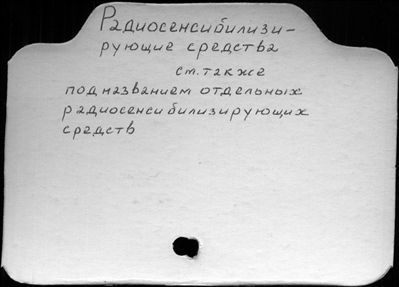 Радиосенсибилизи-
рующие средства
см. также
под названием отдельных
радиосенсибилизирующих
средств